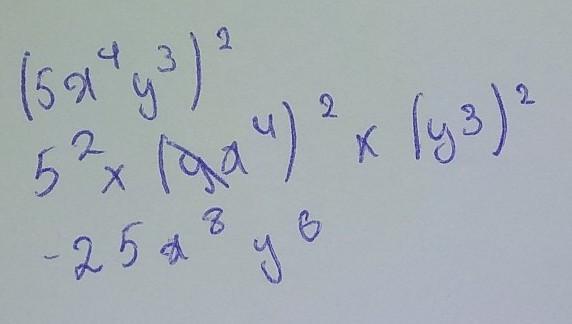 (5x⁴y³)²
5² × (x⁴)² × (y³)²
-25x⁸y⁶